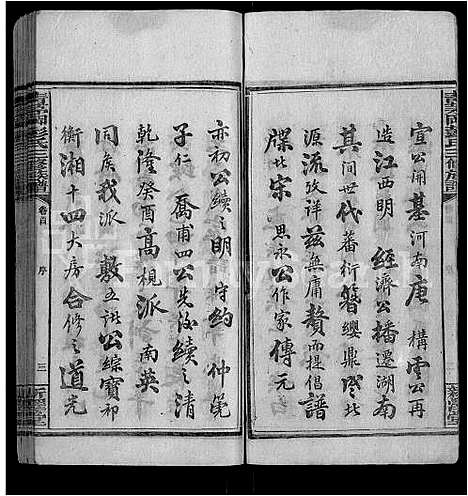 宣公開基河南唐構雲公再
造江西明經濟公播遷湖南
其間世代蕃衍簪纓鼎盛此
源流攷詳茲無庸贅而提倡譜
牒北宋思永公作家傳元
亦初公續之明守約仲篪
子仁喬甫四公先後續之清
乾隆癸酉高梘派南英
同族我派敷五諸公綜寶祁
衡湘十四大房合修之道光
彭氏三修族譜
卷首
序
三